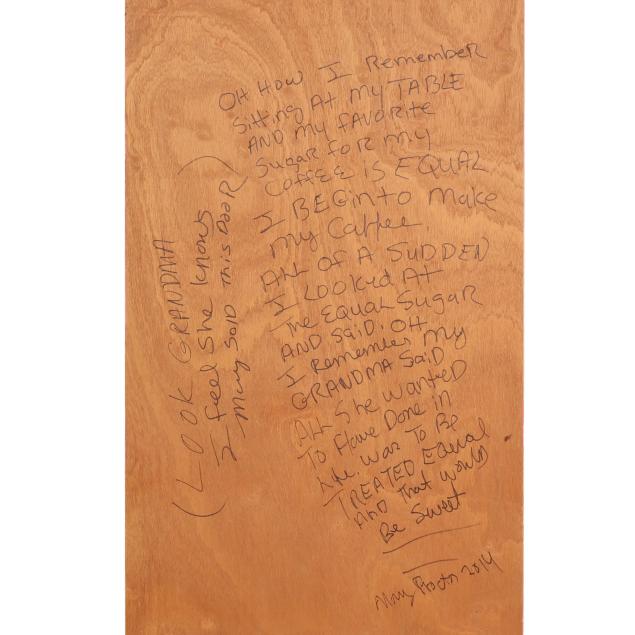 OH HOW I Remember
Sitting At my TABLE
AND my FAVORITE
Sugar FOR my
COFFEE IS EQUAL
I BEGIN to make
my Caffee.
ALL OF A SUDDEN
I LOOKED At
The EQUAL SUGAR
AND SAID. OH
I Remember my
GRANDMA SAID
All She wanted
To Have Done in
Life. was To Be
TREATED EQUAL
AND That would
Be Sweet
Mary Proctor 2014
(LOOK GRANDMA
I feel She knows
Mary SOLD This DooR)